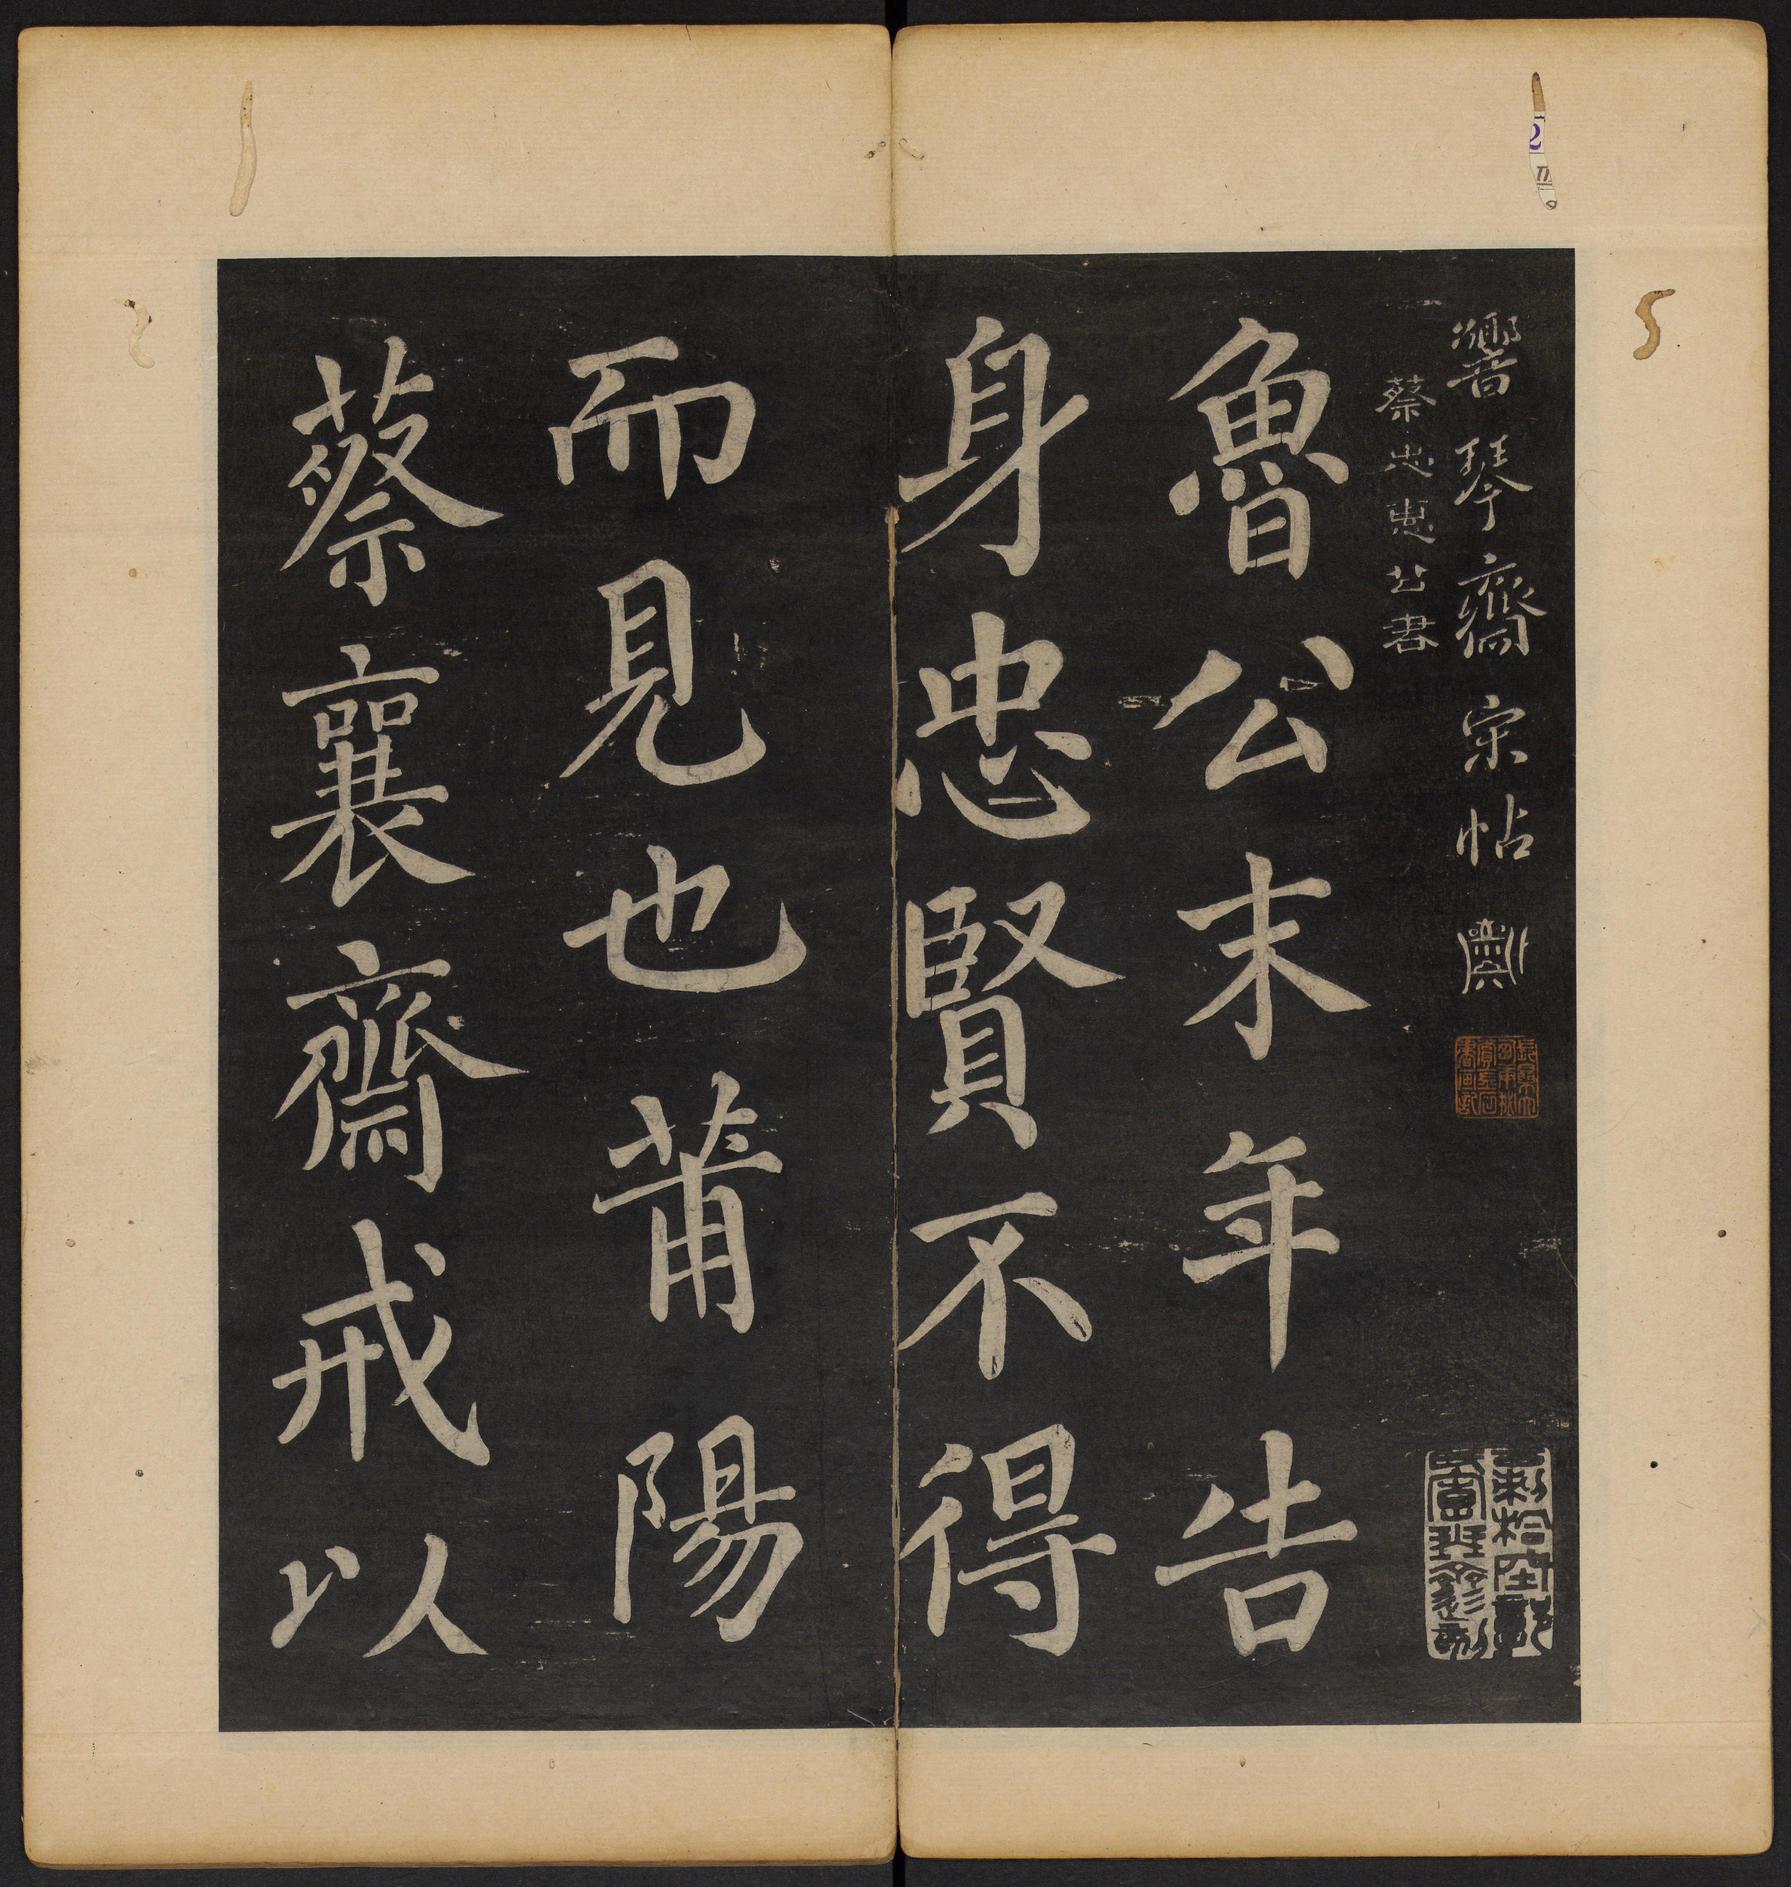 響琴齋宋帖
蔡忠惠公書
魯公末年告
身忠賢不得
而見也莆陽
蔡襄齋戒以